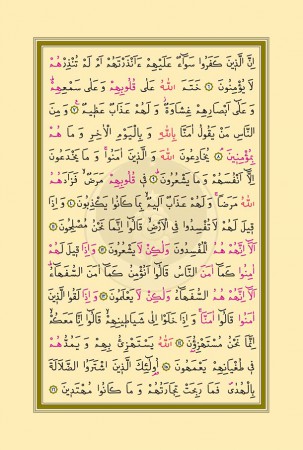 اِنَّ الَّذٖينَ كَفَرُوا سَوَٓاءٌ عَلَيْهِمْ ءَاَنْذَرْتَهُمْ اَمْ لَمْ تُنْذِرْهُمْ
لَا يُؤْمِنُونَ ﴿٦﴾ خَتَمَ اللّٰهُ عَلٰى قُلُوبِهِمْ وَ عَلٰى سَمْعِهِمْ
وَ عَلٰٓى اَبْصَارِهِمْ غِشَاوَةٌ وَ لَهُمْ عَذَابٌ عَظٖيمٌ ﴿٧﴾ وَ مِنَ
النَّاسِ مَنْ يَقُولُ اٰمَنَّا بِاللّٰهِ وَ بِالْيَوْمِ الْاٰخِرِ وَ مَا هُمْ
بِمُؤْمِنٖينَ ﴿٨﴾ يُخَادِعُونَ اللّٰهَ وَ الَّذٖينَ اٰمَنُوا وَ مَا يَخْدَعُونَ
اِلَّٓا اَنْفُسَهُمْ وَ مَا يَشْعُرُونَ ﴿٩﴾ فٖى قُلُوبِهِمْ مَرَضٌ فَزَادَهُمُ
اللّٰهُ مَرَضًا وَ لَهُمْ عَذَابٌ اَلٖيمٌ بِمَا كَانُوا يَكْذِبُونَ ﴿١٠﴾ وَ اِذَا
قٖيلَ لَهُمْ لَا تُفْسِدُوا فِى الْاَرْضِ قَالُٓوا اِنَّمَا نَحْنُ مُصْلِحُونَ ﴿١١﴾
اَلَٓا اِنَّهُمْ هُمُ الْمُفْسِدُونَ وَلٰكِنْ لَا يَشْعُرُونَ ﴿١٢﴾ وَ اِذَا قٖيلَ لَهُمْ
اٰمِنُوا كَمَٓا اٰمَنَ النَّاسُ قَالُٓوا اَنُؤْمِنُ كَمَٓا اٰمَنَ السُّفَهَٓاءُ
اَلَٓا اِنَّهُمْ هُمُ السُّفَهَٓاءُ وَلٰكِنْ لَا يَعْلَمُونَ ﴿١٣﴾ وَ اِذَا لَقُوا الَّذٖينَ
اٰمَنُوا قَالُٓوا اٰمَنَّا وَ اِذَا خَلَوْا اِلٰى شَيَاطٖينِهِمْ قَالُٓوا اِنَّا مَعَكُمْ
اِنَّمَا نَحْنُ مُسْتَهْزِؤُنَ ﴿١٤﴾ اَللّٰهُ يَسْتَهْزِئُ بِهِمْ وَ يَمُدُّهُمْ
فٖى طُغْيَانِهِمْ يَعْمَهُونَ ﴿١٥﴾ اُولٰٓئِكَ الَّذٖينَ اشْتَرَوُا الضَّلَالَةَ
بِالْهُدٰى فَمَا رَبِحَتْ تِجَارَتُهُمْ وَ مَا كَانُوا مُهْتَدٖينَ ﴿١٦﴾